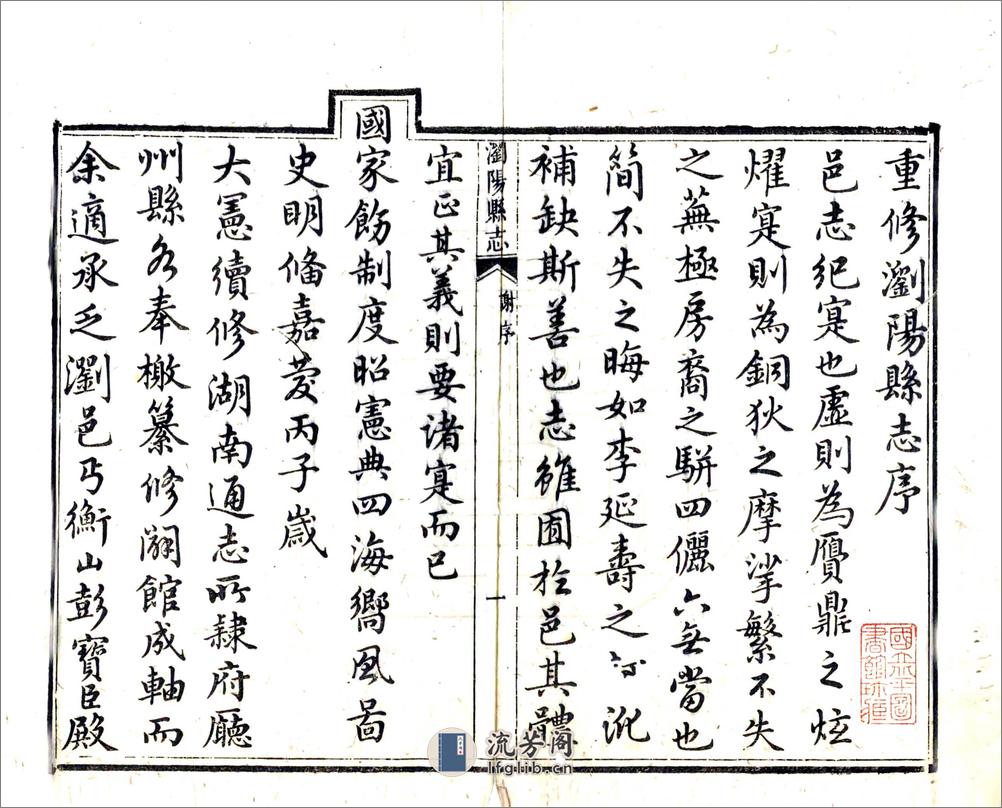 重修瀏陽縣志序
邑志紀寔也虛則為贗鼎之炫
燿寔則為銅狄之摩挲繁不失
之蕪極房裔之駢四儷六無當也
簡不失之晦如李延壽之訂訛
補缺斯善也志雖囿於邑其體
瀏陽縣志 謝序 一
宜正其義則要诸寔而已
國家飭制度昭憲典四海嚮風啚
史明備嘉慶丙子歲
大憲續修湖南通志所隸府廳
州縣各奉檄纂修闢館成軸而
余適承乏瀏邑乃衡山彭寶臣殿
流芳阁
lfglib.cn